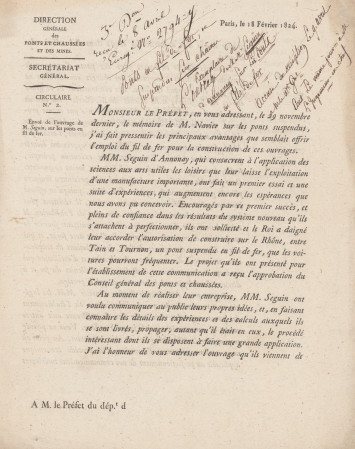 DIRECTION
GÉNÉRALE
des
PONTS ET CHAUSSÉES
ET DES MINES.
SECRÉTARIAT
GÉNÉRAL.
CIRCULAIRE
N.° 2.
Envoi de l'ouvrage de
M. Seguin, sur les ponts en
fil de fer.
Paris, le 18 Février 1824.
MONSIEUR LE PRÉFET, en vous adressant, le 29 novembre
dernier, le mémoire de M. Navier sur les ponts suspendus,
j'ai fait pressentir les principaux avantages que semblait offrir
l'emploi du fil de fer pour la construction de ces ouvrages.
MM. Seguin d'Annonay, qui consacrent à l'application des
sciences aux arts utiles les loisirs que leur laisse l'exploitation
d'une manufacture importante, ont fait un premier essai et une
suite d'expériences, qui augmentent encore les espérances que
nous avons pu concevoir. Encouragés par ce premier succès, et
pleins de confiance dans les résultats du système nouveau qu'ils
s'attachent à perfectionner, ils ont sollicité et le Roi a daigné
leur accorder l'autorisation de construire sur le Rhône, entre
Tain et Tournon, un pont suspendu en fil de fer, que les voi-
tures pourront fréquenter. Le projet qu'ils ont présenté pour
l'établissement de cette communication a reçu l'approbation du
Conseil général des ponts et chaussées.
Au moment de réaliser leur entreprise, MM. Seguin ont
voulu communiquer au public leurs propres idées, et, en faisant
connaître les détails des expériences et des calculs auxquels ils
se sont livrés, propager, autant qu'il était en eux, le procédé
intéressant dont ils se disposent à faire une grande application.
J'ai l'honneur de vous adresser l'ouvrage qu'ils viennent de
A M. le Préfet du dép.t d